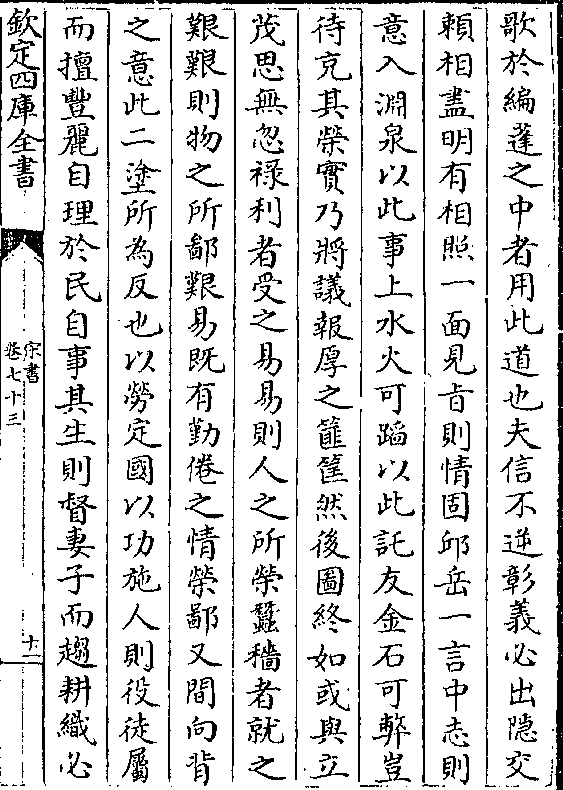 歌於編蓬之中者用此道也夫信不逆彰義必出隱交
賴相盡明有相照一面見㫖則情固邱岳一言中志則
意入淵泉以此事上水火可蹈以此託友金石可弊豈
待充其榮實乃將議報厚之篚筐然後圖終如或與立
茂思無忽祿利者受之易易則人之所榮蠶穡者就之
艱艱則物之所鄙艱易既有勤倦之情榮鄙又間向背
之意此二塗所為反也以勞定國以功施人則役徒屬
而擅豐麗自理於民自事其生則督妻子而趨耕織必
欽定四庫全書
宋書
卷七十三
十二